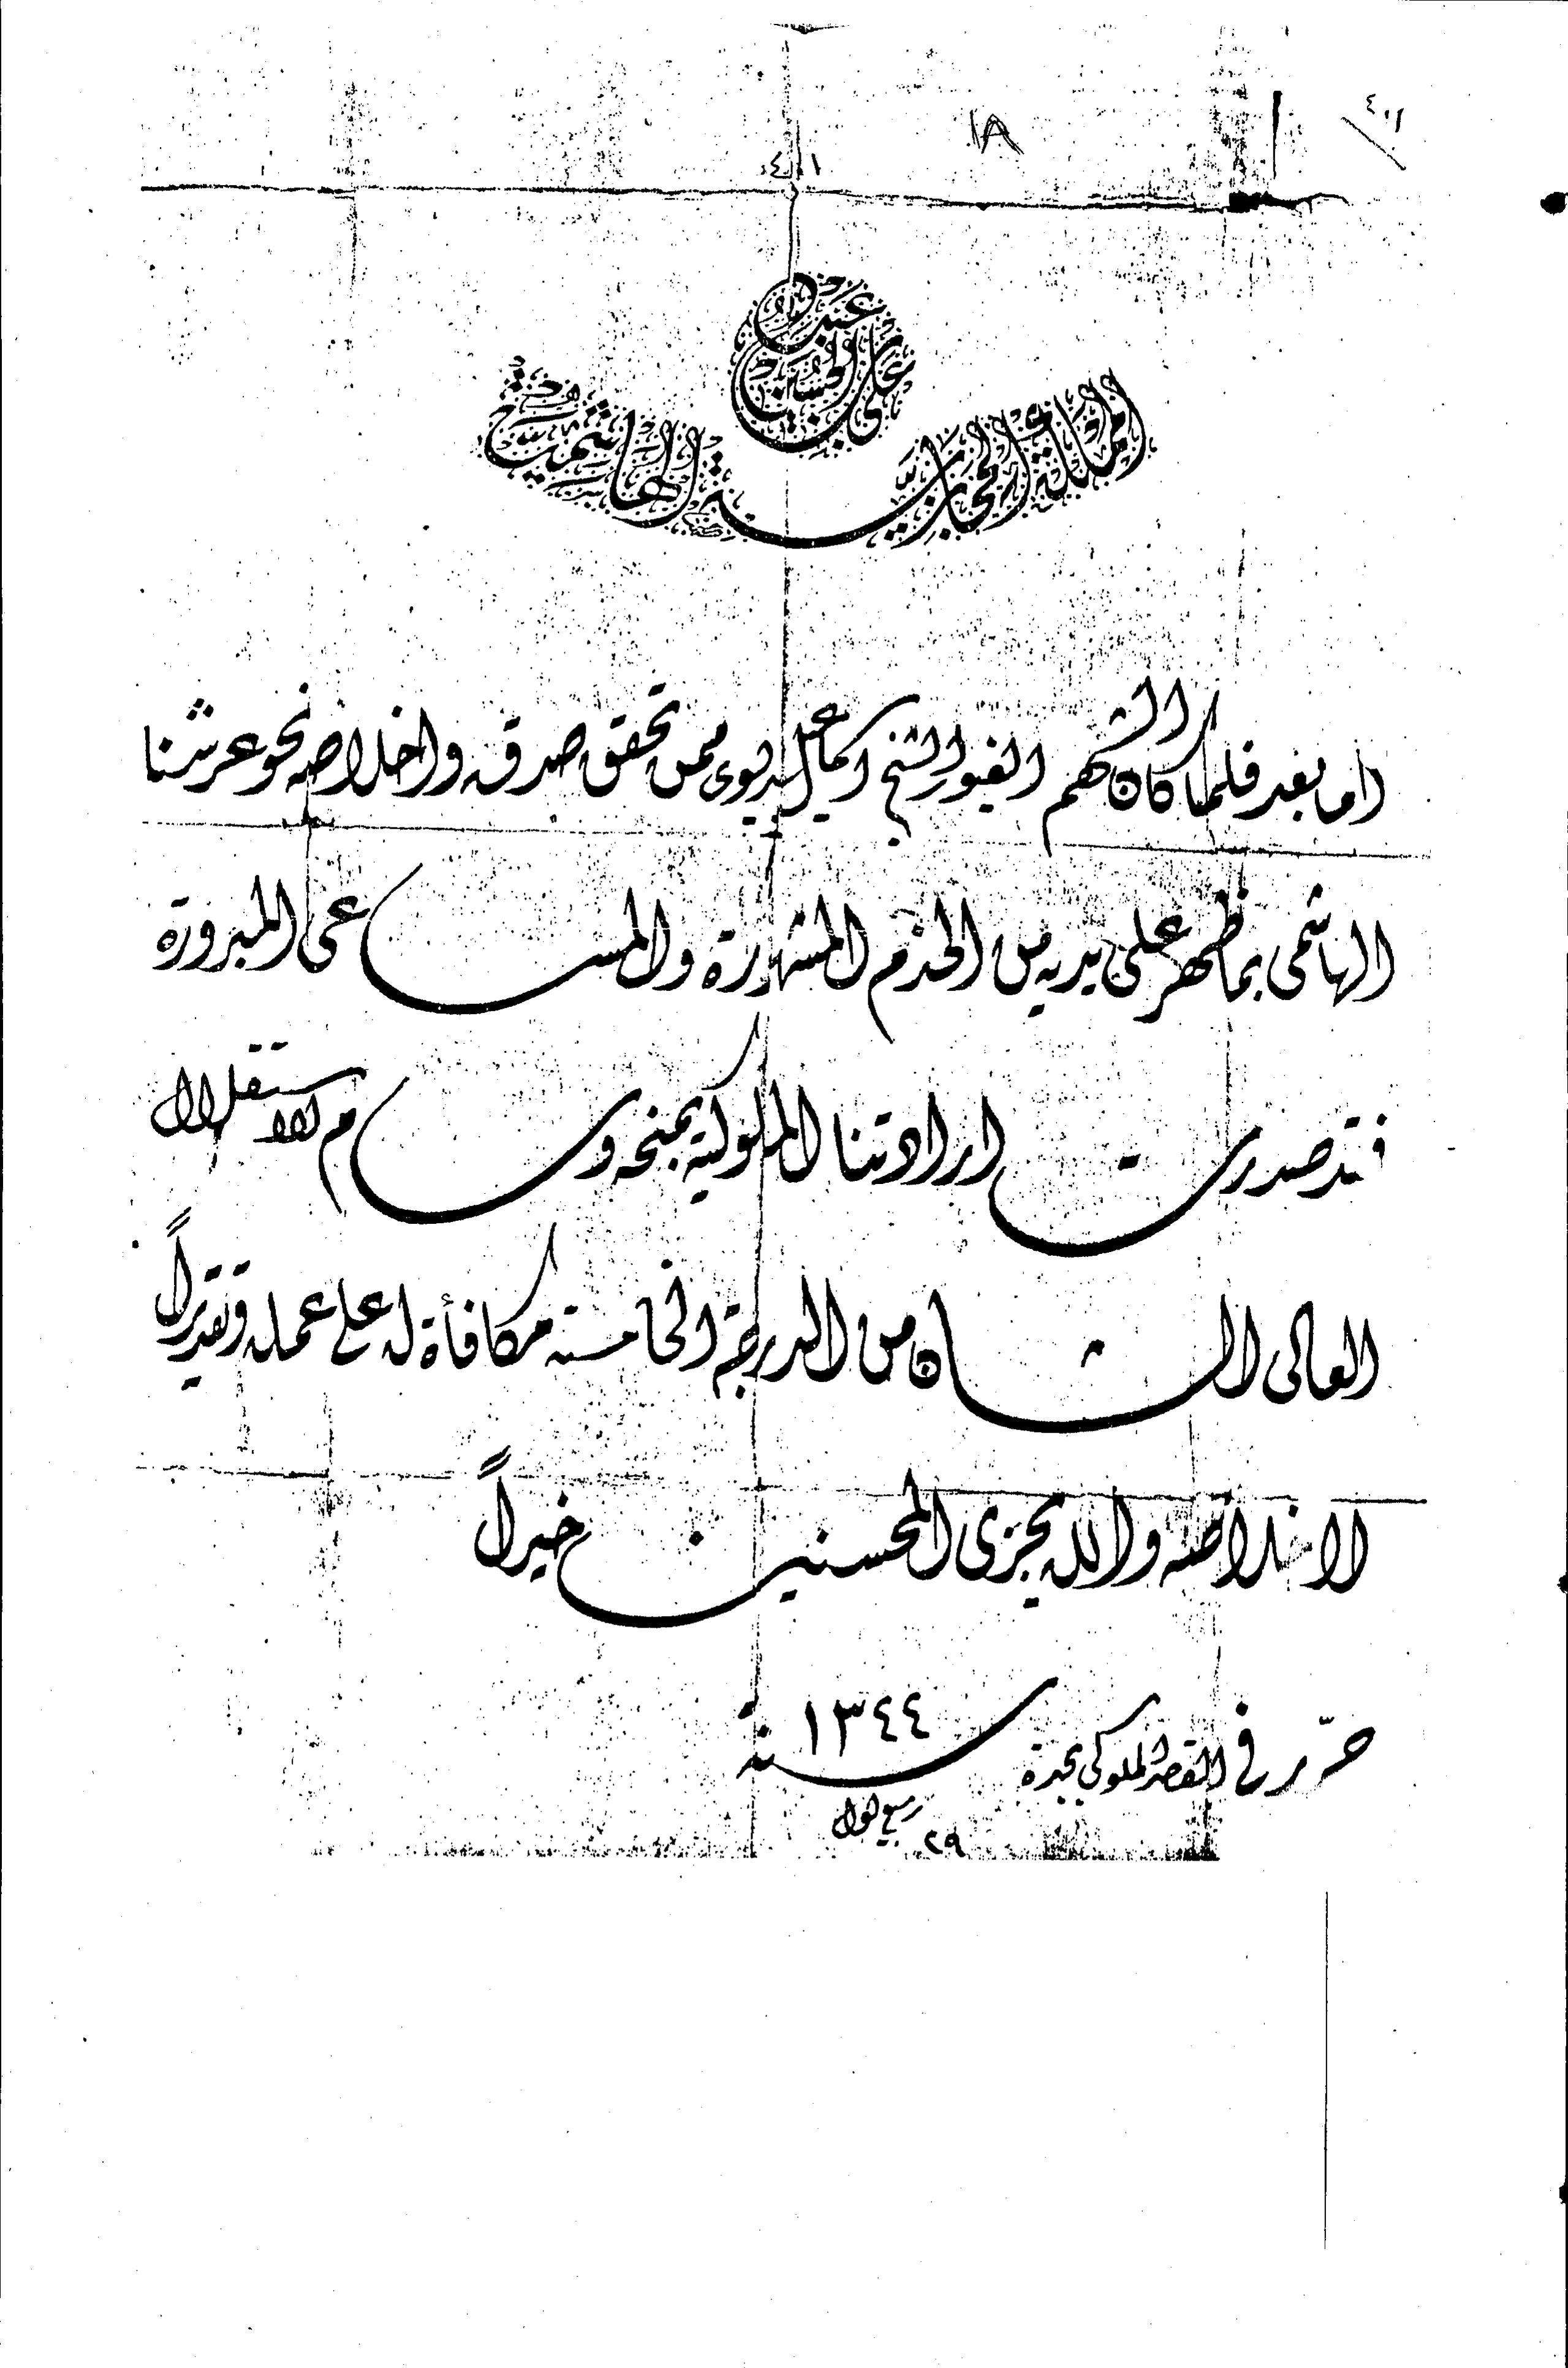 ٤٠١
١٨
٤٠١
عبده
علي بن الحسين
المملكة الحجازية الهاشمية
اما بعد فلما كان الشهم الغيور الشيخ اسماعيل بديوى ممن تحقق صدقه واخلاصه نحو عرشنا
الهاشمى بما ظهر على يديه من الخدم المشهورة والمساعى المبرورة
فقد صدرت ارادتنا الملوكية بمنحه وسام الاستقلال
العالى الشان من الدرجة الخامسة مكافأة له على عمله وتقديراً
لاخلاصه والله يجزى المحسنين خيراً
حرّر فى القصر الملوكي بجدة سنة ١٣٤٤
٢٩ ربيع الاول